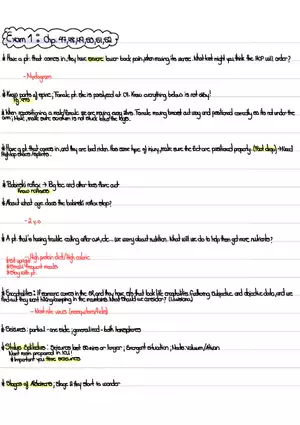 Exam 1 : Chp. 47,48,49,50,51,52
# Have a pt. that comes in, they have severe lower back pain when moving the sacrum. What test might you think the HCP will order?
- Myelogram
# Know parts of spine ; Female pt. she is paralyzed at C4. Know everything below is not okay!
pg. 1473
# When repositioning a male/female we are moving easy slow. Female moving breast out easy and positioned correctly so its not under the arm ; Male , make sure scrotum is not stuck below the legs.
# Have a pt that comes in, and they are bed ridden. Has some type of injury, make sure the feet are positioned properly (foot drop) → Need
high top shoes/splints .
# Babinski reflex → Big toe and other toes flare out
Know reflexes
# About what age does the babinski reflex stop?
- 2 y.o
# A pt. that is having trouble eating after cva, etc... we worry about nutrition. What will we do to help them get more nutrients?
- High protein diets/High caloric
# Sit upright
# Small frequent meals
# Stay with pt.
# Encephalitis : If someone comes in the ER, and they have s/s that look like encephalitis. Gathering subjective and objective data, and we
find out they went hiking/camping in the mountains. What should we consider?
- West nile virus (mosquitoes/ticks)
# Seizures : partial - one side ; generalized - both hemispheres
# Status Epilepticus : Seizures last 30 mins or longer ; Emergent situation ; Needs Valium/Ativan
Want room prepared in ICU!
# Important you time seizures
# Stages of Alzheimers ; Stage 2 they start to wander